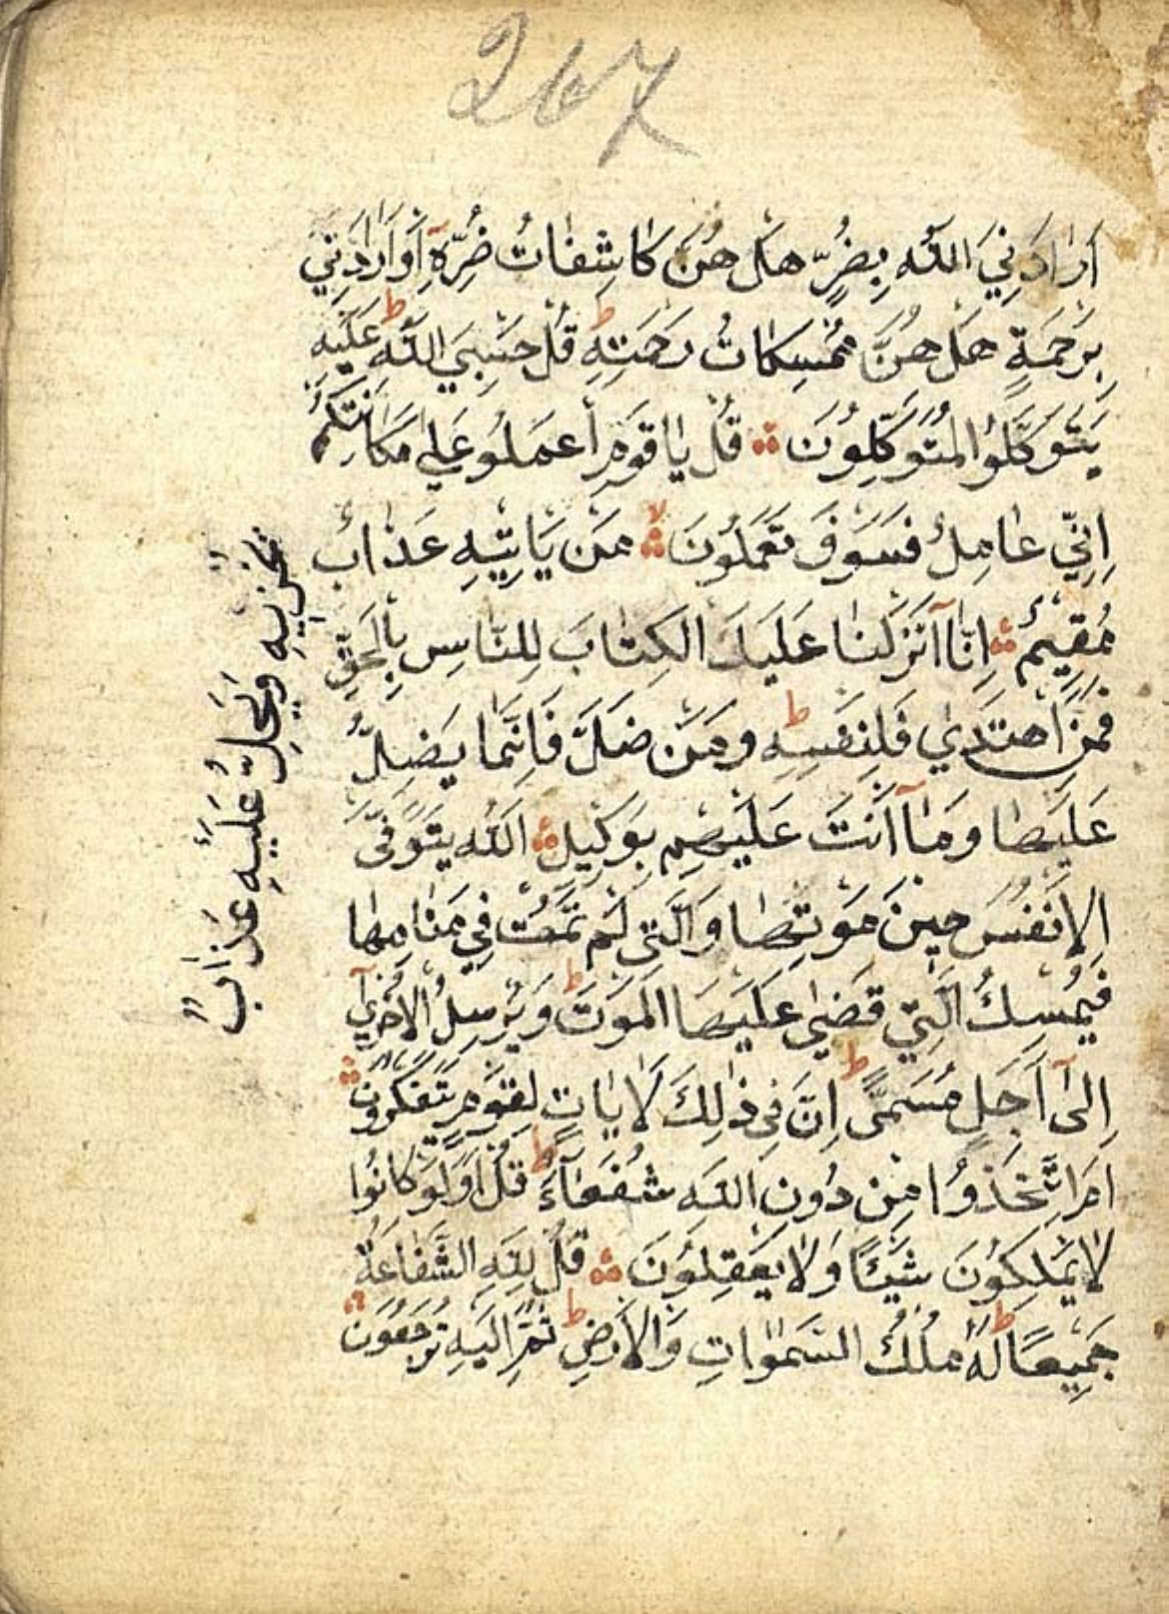 267
اَرَادَنِيَ اللّٰهُ بِضُرٍّ هَلْ هُنَّ كَاشِفَاتُ ضُرِّهِٓ اَوْ اَرَادَنِي
بِرَحْمَةٍ هَلْ هُنَّ مُمْسِكَاتُ رَحْمَتِهِ ط قُلْ حَسْبِيَ اللّٰهُ ط عَلَيْهِ
يَتَوَكَّلُوا الْمُتَوَكِّلُونَ ۞ قُلْ يَا قَوْمِ اعْمَلُو عَلٰى مَكَانَتِكُمْ
اِنِّي عَامِلٌ فَسَوْفَ تَعْمَلُونَ لا مَنْ يَاْتِيْهِ عَذَابٌ
مُقِيمٌ ۞ اِنَّآ اَنْزَلْنَا عَلَيْكَ الْكِتَابَ لِلنَّاسِ بِالْحَقِّ
فَمَنِ اهْتَدٰي فَلِنَفْسِهِ ط وَمَنْ ضَلَّ فَاِنَّمَا يَضِلُّ
عَلَيْهَا وَمَآ اَنْتَ عَلَيْهِمْ بِوَكِيلٍ ۞ اَللّٰهُ يَتَوَفَّى
الْاَنْفُسَ حِينَ مَوْتِهَا وَالَّتِي لَمْ تَمُتْ فِي مَنَامِهَا
فَيُمْسِكُ الَّتِي قَضٰى عَلَيْهَا الْمَوْتَ ط وَيُرْسِلُ الْاُخْرٰيٓ
اِلٰٓى اَجَلٍ مُسَمًّى ط اِنَّ فِي ذٰلِكَ لَاٰيَاتٍ لِقَوْمٍ يَتَفَكَّرُونَ ۞
اَمِ اتَّخَذُوا مِنْ دُونِ اللّٰهِ شُفَعَآءَ ط قُلْ اَوَلَوْ كَانُوا
لَا يَمْلِكُونَ شَيْئًا وَلَا يَعْقِلُونَ ۞ قُلْ لِلّٰهِ الشَّفَاعَةُ
جَمِيعًا ط لَهُ مُلْكُ السَّمٰوَاتِ وَالْاَرْضِ ط ثُمَّ اِلَيْهِ تُرْجَعُونَ ۞
يُخْزِيهِ وَيَحِلُّ عَلَيْهِ عَذَابٌ